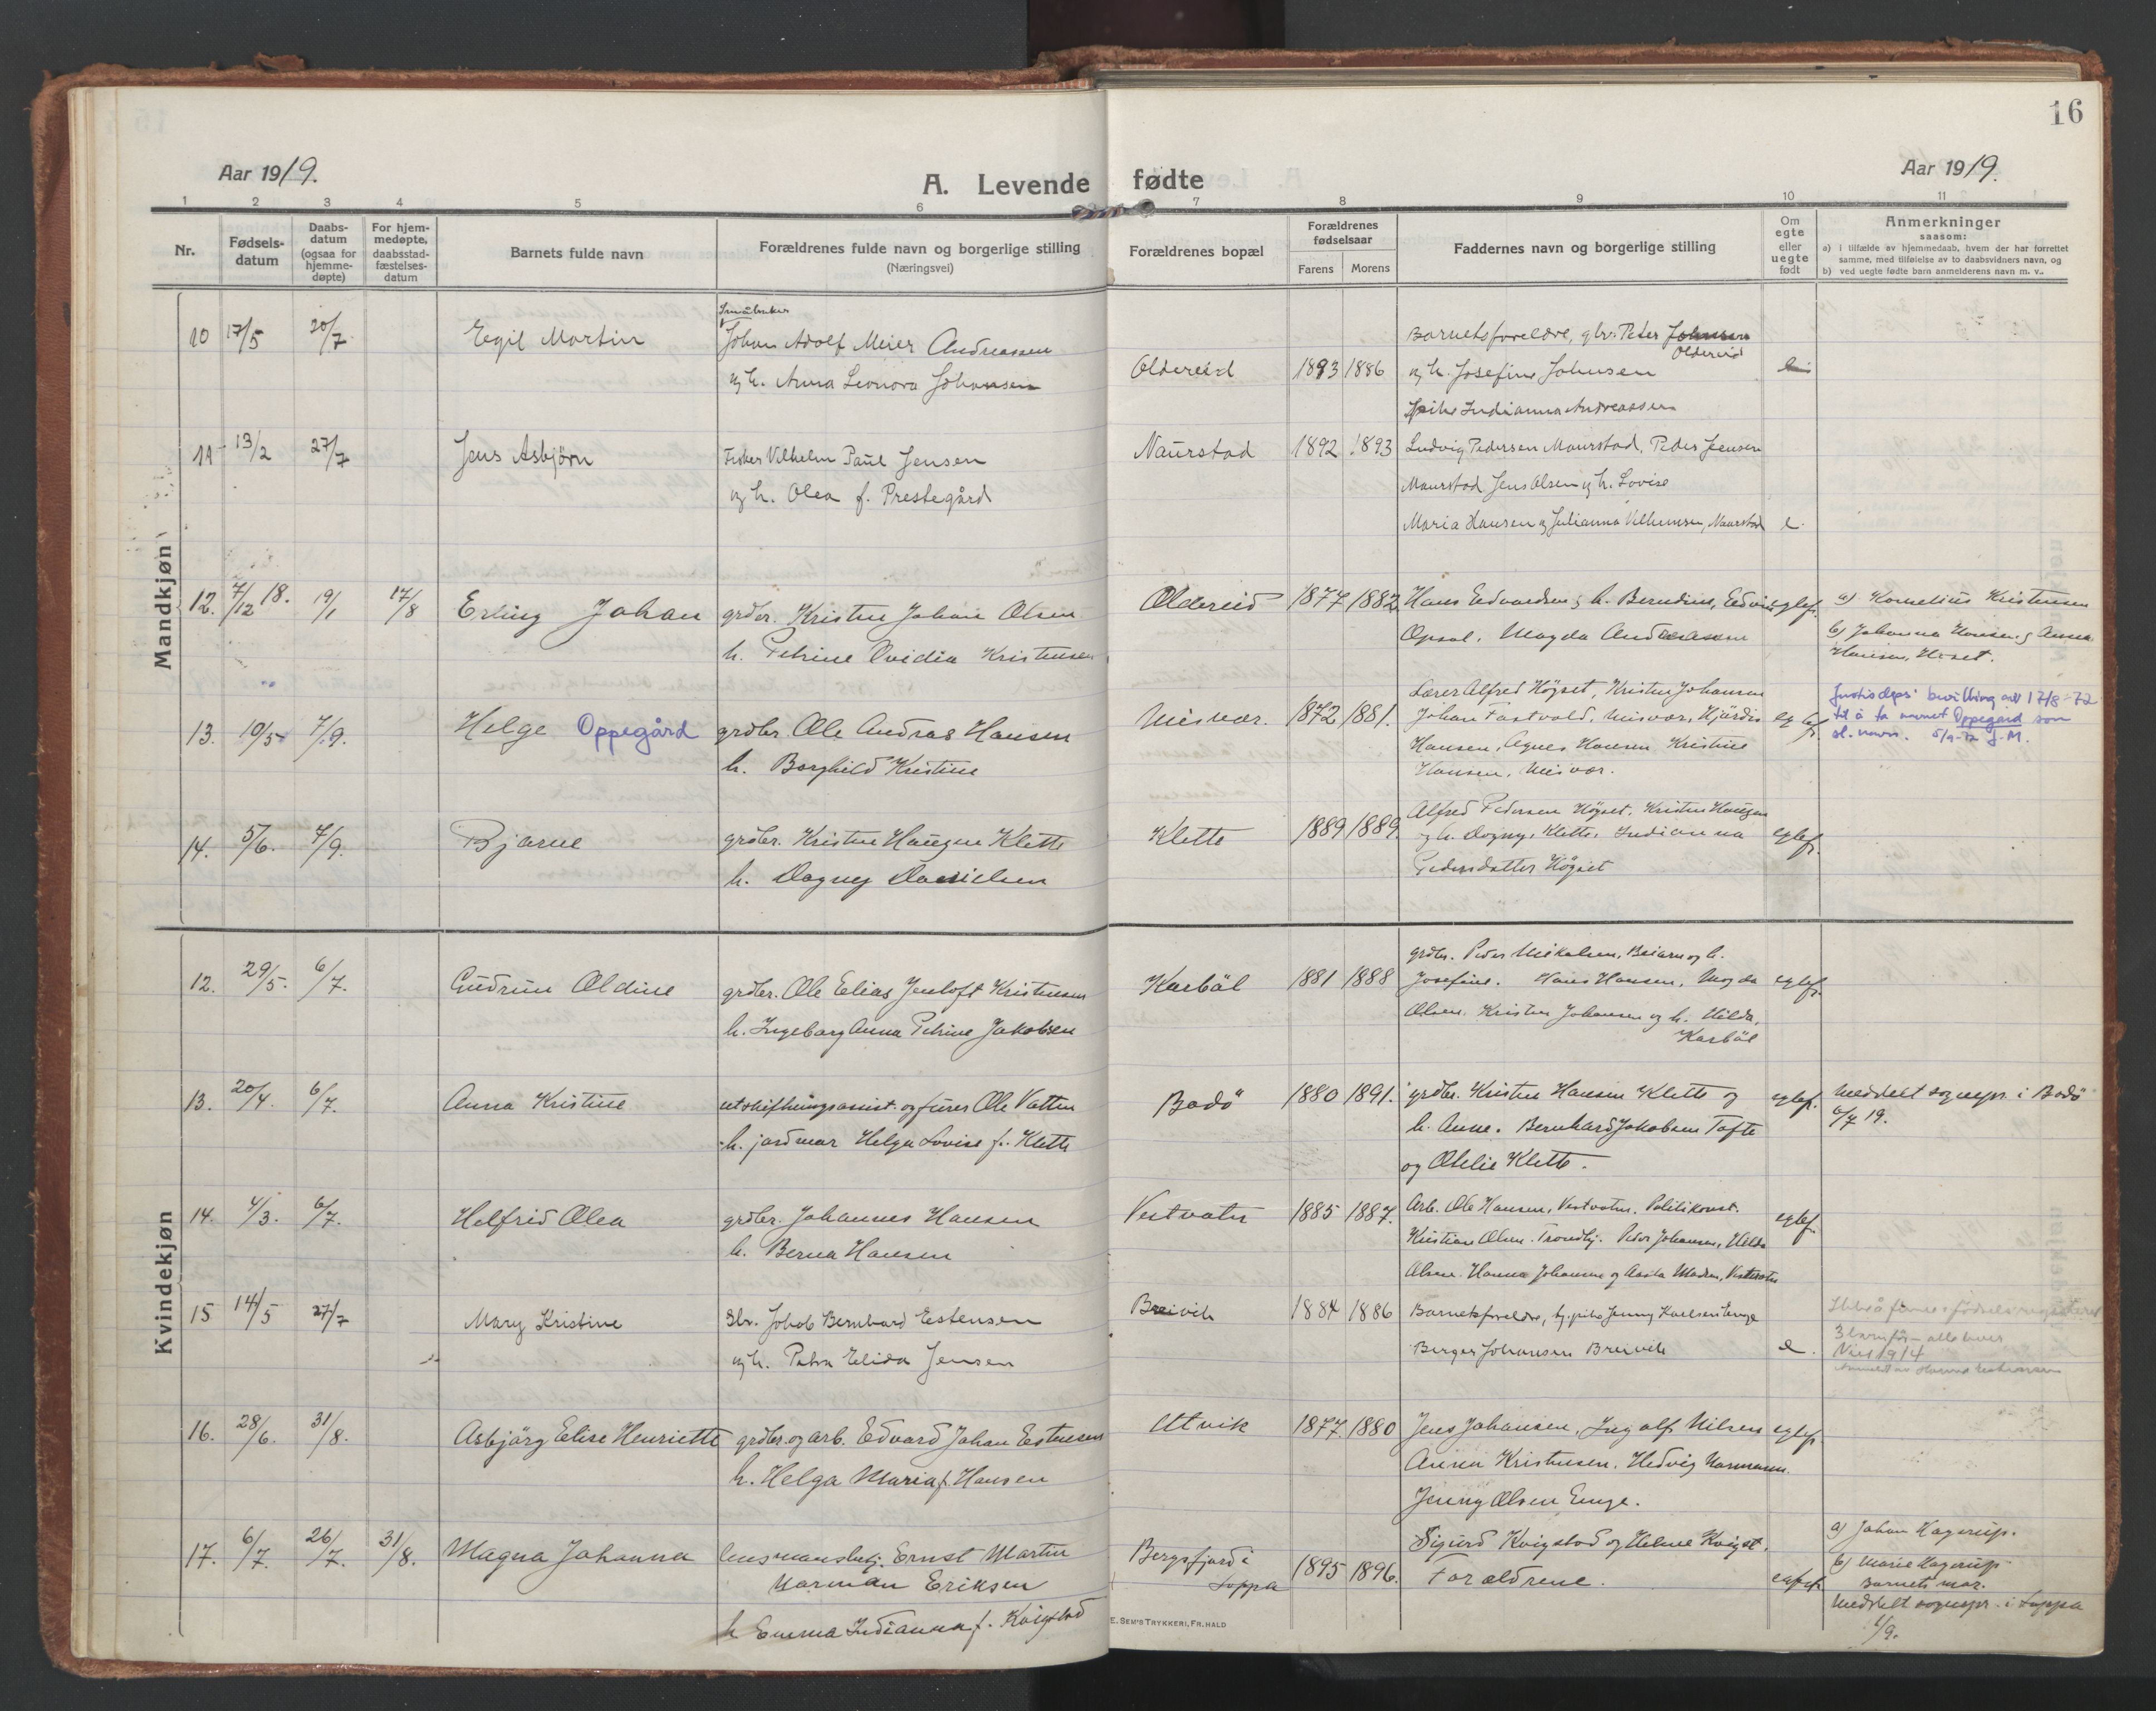 16
Aar 1919.
A. Levende fødte
Aar 1919.
1 2 3 4 5 6 7 8 9 10 11
Nr.
Fødsels-
datum
Daabs-
datum
(ogsaa for
hjemme-
døpte)
For hjem-
medøpte,
daabsstad-
fæstelses-
datum
Barnets fulde navn
Forældrenes fulde navn og borgerlige stilling
(Næringsvei)
Forældrenes bopæl
Forældrenes
fødselsaar
Farens Morens
Faddernes navn og borgerlige stilling
Om
egte
eller
uegte
født
Anmerkninger
saasom:
a) i tilfælde av hjemmedaab, hvem der har forrettet
samme, med tilføielse av to daabsvidners navn, og
b) ved uegte fødte barn anmelderens navn m. v..
Mandkjøn
10 17/5 20/7 Egil Martin
Småbruker
Johan Adolf Meier Andreassen
og h. Anna Leonora Johansen
Oldereid 1893 1886
Barnetsforeldre, gbr. Peder Johnsen
Oldereid
og h. Josefine Johnsen
Pike Indianna Andreassen
11 13/2 27/7 Jens Asbjörn
Fisker Vilhelm Paul Jensen
og h. Olea f. Prestegård
Naurstad 1892 1893
Ludvig Pedersen Naurstad, Peder Jensen
Naurstad Jens Olsen og h. Lovise
Maria Hansen og Julianna Vilhemsen, Naurstad e.
12. 7/12 18. 19/1 17/8 Erling Johan
grdbr. Kristen Johan Olsen
h. Petrine Ovidia Kristensen
Oldereid 1877 1882
Hans Edvardsen og h. Berndine, Edvin
Opsal. Magda Andreassen
egtef.
a) Kornelius Kristensen
b) Johanna Hansen og Anna
Hansen,
13. 10/5 7/9. Helge Oppegård
grdbr. Ole Andreas Hansen
h. Borghild Kristine
Misvær. 1872 1881.
Lærer Alfred Höyset, Kristen Johansen
Johan Fastvold, Misvær, Hjärdis
Hansen, Agnes Hansen Kristine
Hansen, Misvær.
egtef.
Justisdeps' bevilling av 17/8-72
til å ta navnet Oppegård som
sl.navn. 5/9-72 J.M.
14. 5/6. 7/9. Bjarne
grdbr. Kristen Haugen Klette
h. Dagny Danielsen
Klette 1889 1889.
Alfred Pedersen Höyset. Kristen Haugen
og h. Dagny, Klette, Indianna
Pedersdatter Höyset
egtef.
Kvindekjøn
12. 29/5. 6/7. Gudrun Oldine
grdbr. Ole Elias Jentoft Kristensen
h. Ingeborg Anna Petrine Jakobsen
Karbäl 1881 1888
grdbr. Peder Mikalsen, Beiarn og h.
Josefine. Hans Hansen, Magda
Olsen. Kristen Johansen og h. Hilda,
Karbäl
egtef.
13. 20/4. 6/7. Anna Kristine
utskiftningsassist. og furer Ole Vatten
h. jordmor Helga Lovise f. Klette
Bodö 1880 1891.
grdbr. Kristen Hansen Klette og
h. Anne. Bernhard Jakobsen Tofte
og Otelie Klette.
egtef.
Meddelt sognepr. i Bodö
6/7 19.
14. 4/3. 6/7. Helfrid Olea
grdbr. Johannes Hansen
h. Berna Hansen
Vestvatn 1885 1887.
Arb. Ole Hansen, Vestvatn. Politikonst.
Kristian Olsen. Trondhj. Peder Johansen, Hilda
Olsen. Hanna Johansen og Aasta Madsen, Vestvatn
egtef.
15 14/5 27/7 Mary Kristine
Gbr. Jakob Bernhard Estensen
og h. Petra Elida Jensen
Breivik 1884 1886
Barnetsforeldre, tj.pike Jenny Karlsen Enge
Berger Johansen Breivik
e.
16. 28/6. 31/8. Asbjörg Elise Henriette
grdbr. og arb. Edvard Johan Estensen
h. Helga Maria f. Hansen
Utvik 1877 1880
Jens Johansen, Ingolf Nilsen
Anna Kristensen. Hedvig Normann.
Jenny Olsen Enge.
egtef.
17. 6/7. 26/7. 31/8. Magna Johanna
lensmansbetj. Ernst Martin
Norman Eriksen
h Emma Indianna f. Kvigstad
Bergsfjord i
Loppa
1895 1896.
Sigurd Kvigstad og Helene Kvigst.
Forældrene.
egtef.
a) Johan Hagerup.
b) Marie Hagerup
Barnets mor.
Meddelt sognepr. i Loppa
6/9.
E. SEM'S TRYKKERI, FR. HALD